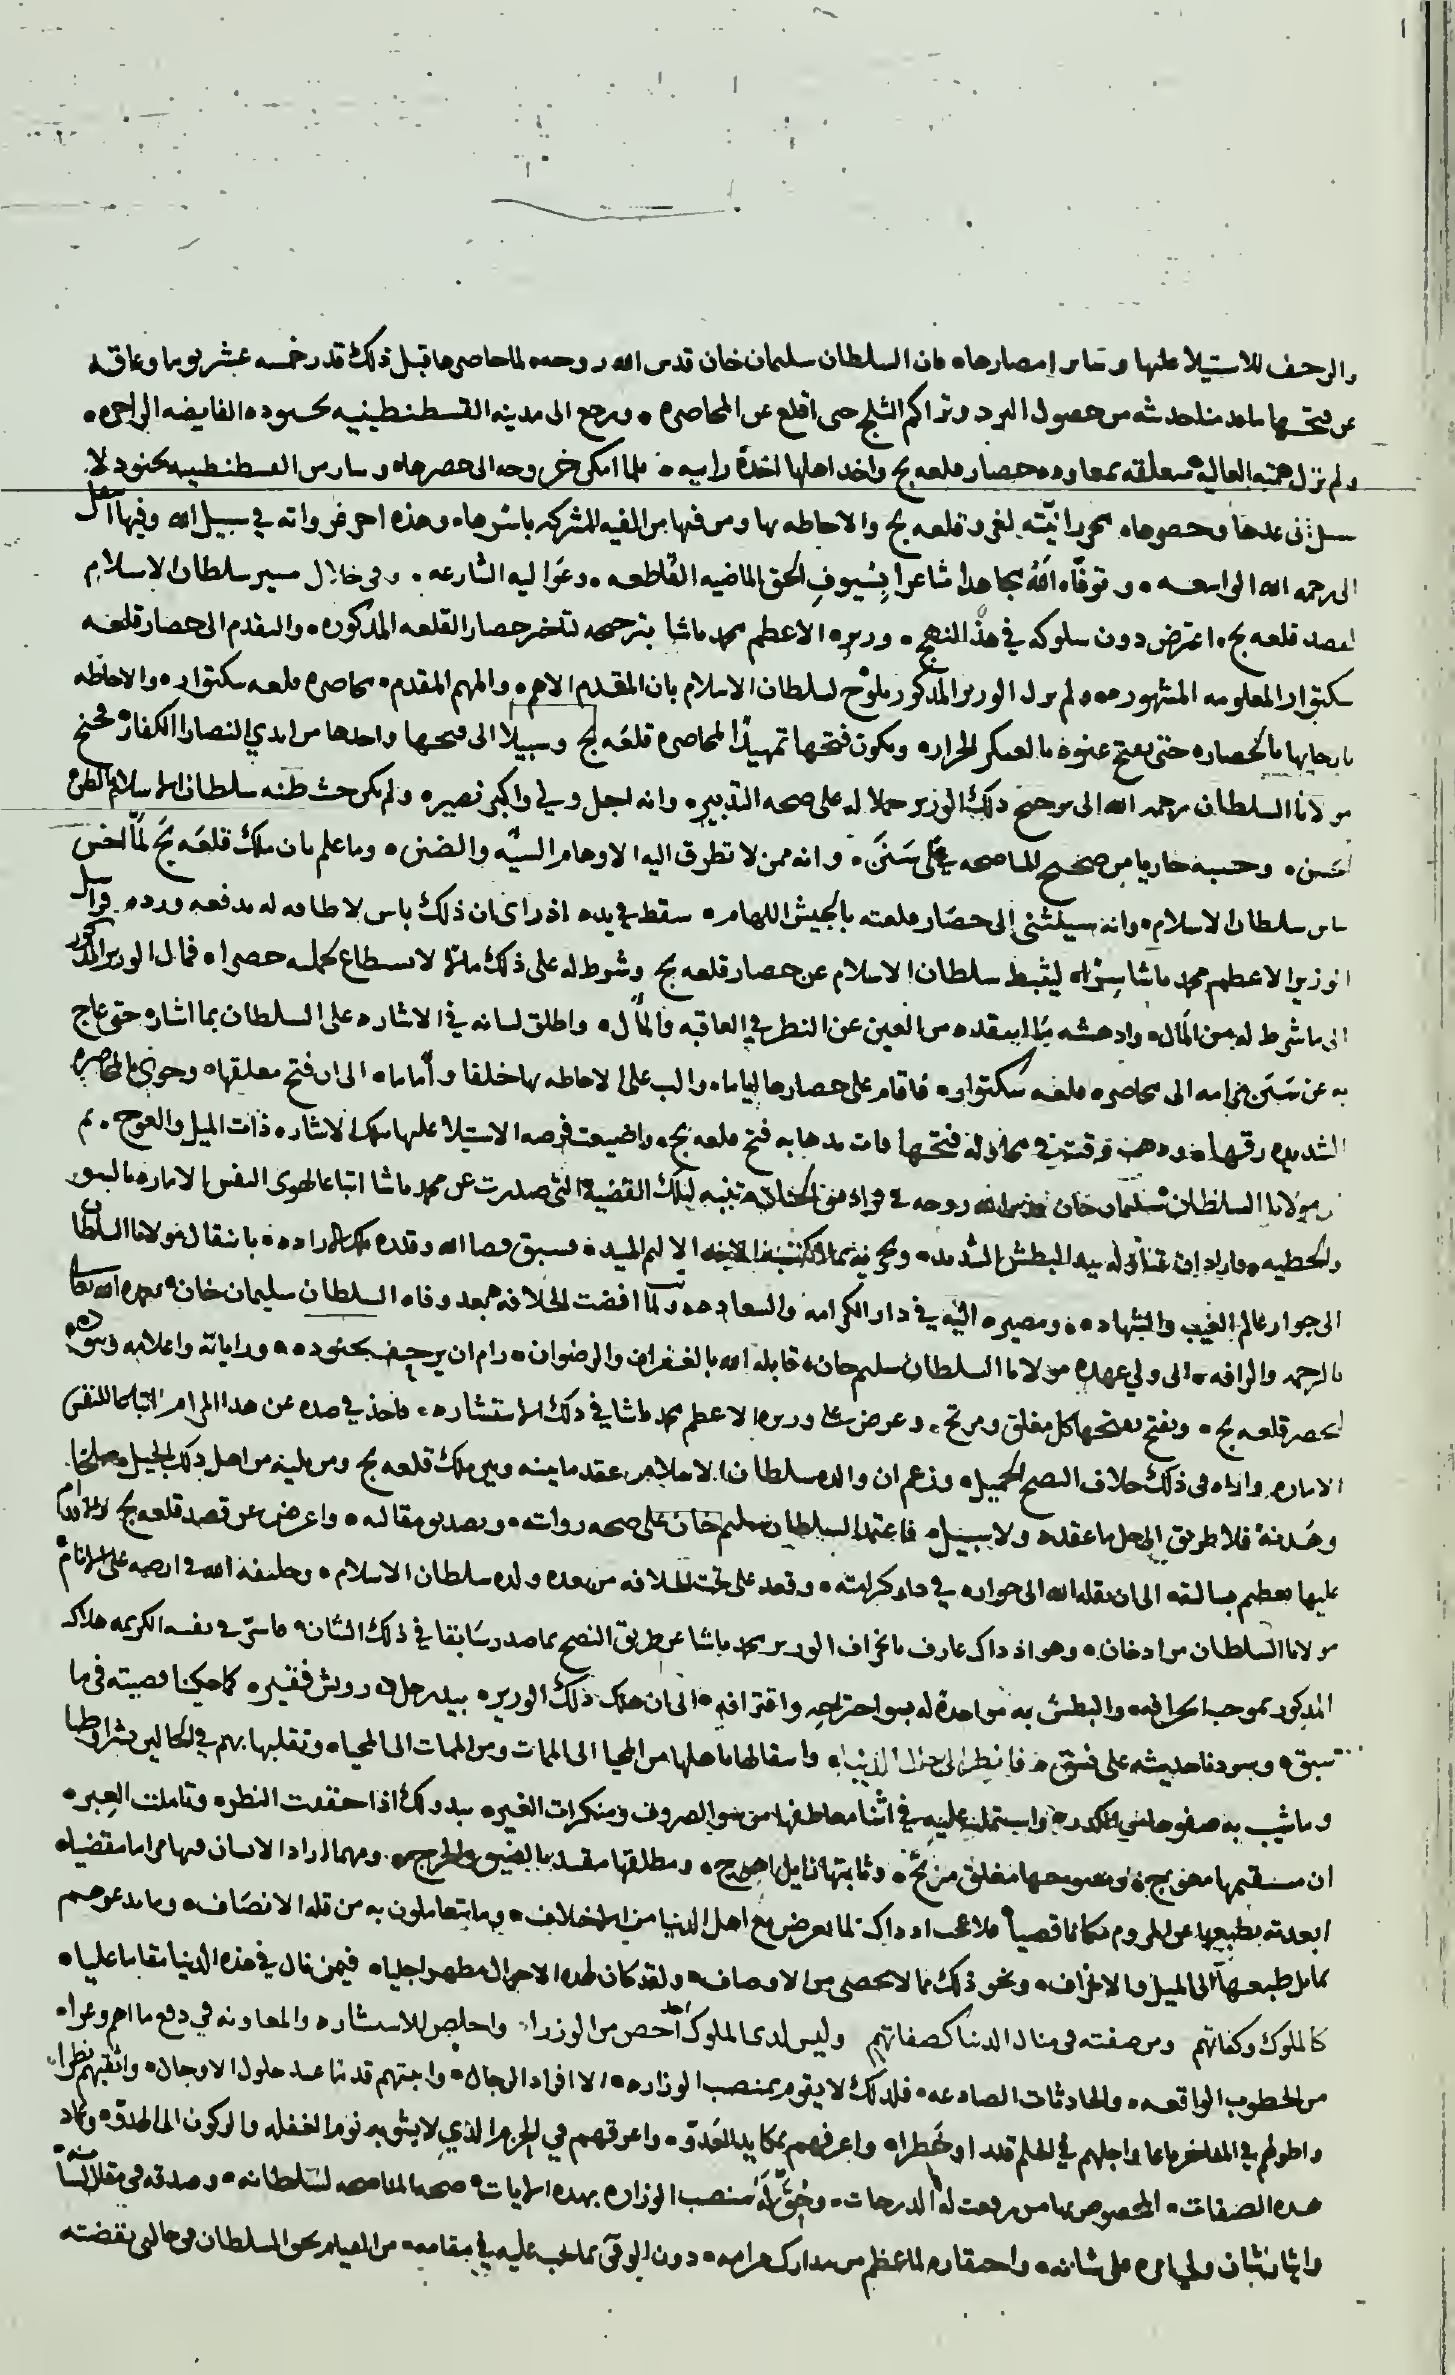 والزحف للاستيلا عليها وساير امصارها، فان السلطان سليمان خان قدس الله روحه، لما حاصرها قبل ذلك قدر خمسه عشر يوما وعاقه
عن فتحها ما حدثه من حصول البرد وتراكم الثلج حتى اقلع عن المحاصره، ورجع الى مدينه القسطنطينيه بجنوده الفايضه الزاخره،
ولم تزل همته العاليه متعلقه بمعاوده حصار قلعه بج واخذ اهلها اخذة رابيه، فلما امكن خروجه الى حصرها، وسار من القسطنطينيه بجنود لا
عدها وحصرها، محررا نيّته لغزو قلعه بج والاحاطه بها ومن فيها من الفيه المشركه باسرها، وهذه اخر غزواته في سبيل الله وفيها انتقل
الى رحمه الله الواسعه، وتوفّاه الله مجاهدا شاهرا بِسُيوفِ الحق الماضيه القاطعه، ودعَوَاليه الشارعه، وفي خلال مسير سلطان الاسلام
لقصد قلعه بج، اعترض دون سلوكه في هذا النهج، وزيره الاعظم محمد باشا بترجيحه لتاخر حصار القلعه المذكوره، والتقدم الى حصار قلعه
سكتوار المعلومه المشهوره، ولم يزل الوزير المذكور يلوّح لسلطان الاسلام بان المقدم الاهم، والمهم المقدم، محاصره قلعه سكتوار، والاحاطه
بارجايها بالحصار، حتى تفتح عنوة بالعسكر الجرار، ويكون فتحها تمهيدًا لمحاصره قلعَه بج وسبيلا الى فتحها واخذها من ايدي النصارا الكفار، فجنح
مولانا السلطان رحمه الله الى ترجيح ذلك الوزير حملا له على صحه التدبير، وانه اجل ولي واكبر نصير، ولم يكن حيث ظنه سلطان الاسلام الظن
الحسن، وحسبه جاريا من صحيح المناصحه على سَنَن، وانه ممن لا تطرق اليه الاوهام السيّه والضنن، وما علم بان ملك قلعَه بَج لمّا احس
باس سلطان الاسلام، وانه سيلثنى الى حصَار قلعته بالجيش اللهام، سقط في يده اذ راى ان ذلك باس لا طاقه له بدفعه ورده، فراسل
الوزير الاعظم محمد باشا سِرّا، ليثبط سلطان الاسلام عن حصار قلعه بج وشرط له على ذلك مالا لا يستطاع كمله حصرا، فمال الوزير المذكور
الى ما شرط له من المال، وادهشه ما ابيعقده من العين عن النظر في العاقبه والمآل، واطلق لسانه في الاشاره على السلطان بما اشار، حتى عاج
به عن سَنَن مرامه الى محاصره قلعه سكتوار، فاقام على حصارها لياما، والب على الاحاطه بها خلفا وأماما، الى ان فتح مغلقها، وحوى بالمحاصره
الشديده رقها، وذهب وقته في محاوله فتحها فات بذهابه فتح قلعه بج، واضيعت فرصه الاستيلا عليها بتلك الاشاره ذات الميل والعوج، ثم
ان مولانا السلطان سليمان خان روحه في تنبه لتلك القضيه التي صدرت عن محمد باشا اتباعا لهوى النفس الاماره بالسو
والخطيه، واراد ان يتناوله بيد البطش الشديد، ويجزيه بما اكتسبه الاخذ الاليم المبيد، فسبق قضا الله وقدره بمراده، بانتقال مولانا السلطان
الى جوار عالم الغيب والشهاده، ومصيره اليه في دار الكرامه والسعاده، ولمّا افضت الخلافه بعد وفاه السلطان سليمان خان تغمده الله تعالى
بالرحمه والرافه، الى ولي عهده مولانا السلطان سليم خان، قابله الله بالغفران والرضوان، رام ان يرجف بجنوده، وراياته واعلامه وبنوده
لحصر قلعه بج، ويفتح بفتحها كل مغلق ومرتج، وعرض على وزيره الاعظم محمد باشا في ذلك الاستشاره، فاخذ في صده عن هذا المرام اتباعا للنفس
الاماره، واراه في ذلك خلاف النصح الجميل، وزعم ان والده سلطان الاسلام عقد ما بينه وبين ملك قلعه بج ومن يليه من اهل ذلك الجيل صلحا
وهُدنة فلا طريق الى حل ما عقده ولا سبيل، فاعتمد السلطان سليم خان على صحه روايته، وتصديق مقالته، واعرض عن قصد قلعه بج والاقدام
عليها بعظيم بسالته، الى ان نقله الله الى جواره في دار كرامته، وقعد على تخت الخلافه من بعده ولده سلطان الاسلام، وخليفه الله في ارضه على الانام
مولانا السلطان مراد خان، وهو اذ ذاك عارف بانحراف الوزير محمد باشا عن طريق النصح بما صدر سَابقا في ذلك الشان، فاسرّ في نفسه الكريمه هلاك
المذكور بموجب انحرافه، والبطش به مواخذة له بسو اجتراحه واقترافه، الى ان هلك ذلك الوزير، بيد رجل درويش فقير، كما حكينا قصته في ما
سبق، وسردنا حديثه على نسق، فانظر الى حال الدنيا، وانتقالها باهلها من المحيا الى الممات ومن الممات الى المحيا، وتقلبها بهم في الحالين شرا وطيا
وما شيب به صفوها من الكدر، واشتملت عليه في اثنا معاطفها من سو الصروف ومنكرات الغير، يبد ولك اذا حققت النظر، وتاملت العِبر،
ان مستقيمها معوج، ومفتوحها مغلق مرتج، وثابتها مايل اهوج، ومطلقها مقيد بالضيق والحرج، ومهما اراد الانسان فيها مراما مقضيا،
ابعدته بطبيعتها عن المروم مكانا قصيا، فلا عجب اذ ذاك لما يعرض مع اهل الدنيا من الاخلاف، وما يتعاملون به من قله الانصَاف، وما يدعوهم
تمايل طبعها الى الميل والانحراف، ونحو ذلك مما لا يحصى من الاوصاف، ولقد كان لهذه الاحوال مظهرا جليا، فيمن نال في هذه الدنيا مقاما عليا،
كالملوك وكفاتهم ومن صفته في منال الدنيا كصفاتهم وليس لدى الملوك احد اخص من الوزرا، واخلص للاستشاره والمعاونه في دفع ما اهم وعرا،
من الخطوب الواقعه، والحادثات الصادعه، فلذلك لا يقوم بمنصب الوزاره، الا افراد الرجال، واثبتهم قدما عند حلول الاوجال، واثقبهم نظرا،
واطولهم في المفاخر باعا، واجلهم في العلم قدرا وخطرا، واعرفهم بمكايد العَدوّ، واعرقهم في الحزم الذي لا يشوبه نوم الغفله والركون الى الهدوّ، وعماد
هذه الصفات، المخصوص بها من رفعت له الدرجات، وحُقَّ لَهُ منصب الوزاره بهذه الايات، صحه المناصحه لسلطانه، وصدقه في مقال لسانه
وايثار شان ولي امره على شانه، واحتقاره لما عظم من مدارك مرامه، دون الوقى بما يجب عليه في مقامه، من القيام بحق السلطان في حالتى نقضته